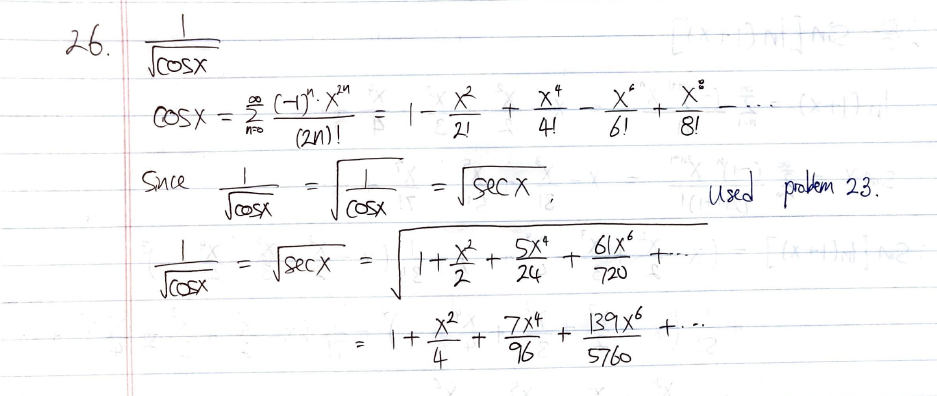 26. 1/√cosx
cosx = ∞ Σ n=0 (-1)ⁿ·x²ⁿ/(2n)! = 1 - x²/2! + x⁴/4! - x⁶/6! + x⁸/8! - ...
Since 1/√cosx = √(1/cosx) = √secx, Used problem 23.
1/√cosx = √secx = √(1 + x²/2 + 5x⁴/24 + 61x⁶/720 + ...)
= 1 + x²/4 + 7x⁴/96 + 139x⁶/5760 + ...